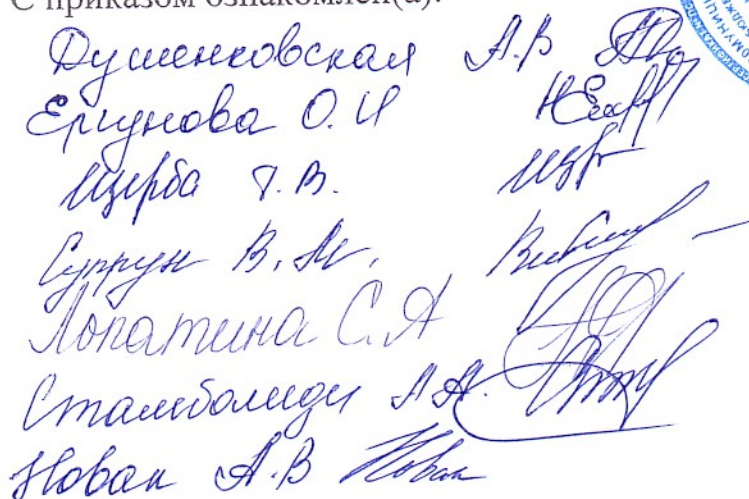 С приказом ознакомлен(а):
Душенковская А.В
Ергунова О.И
Щерба Т.В.
Супрун В.М.
Лопатина С.А
Стамболиди А.А.
Новак А.В Новак